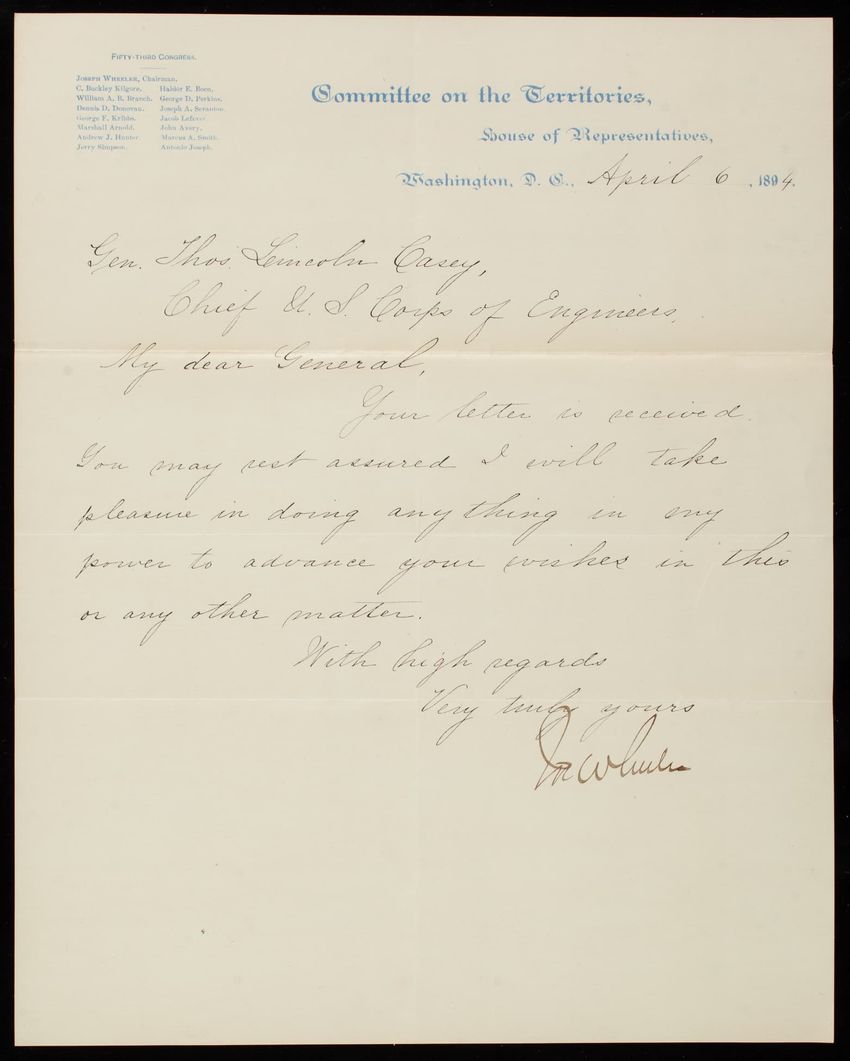 FIFTY-THIRD CONGRESS.
JOSEPH WHEELER, Chairman.
C. Buckley Kilgore.
William A. B. Branch.
Dennis D. Donovan.
George F. Kribbs.
Marshall Arnold.
Andrew J. Hunter.
Jerry Simpson.
Halder E. Boen.
George D. Perkins.
Joseph A. Scranton.
Jacob Lefever.
John Avery.
Marcus A. Smith.
Antonio Joseph.
Committee on the Territories,
House of Representatives,
Washington, D. C., April 6, 1894.
Gen. Thos. Lincoln Casey,
Chief U. S. Corps of Engineers.
My dear General,
Your letter is received.
You may rest assured I will take
pleasure in doing anything in my
power to advance your wishes in this
or any other matter.
With high regards
Very truly yours
Jos Wheeler